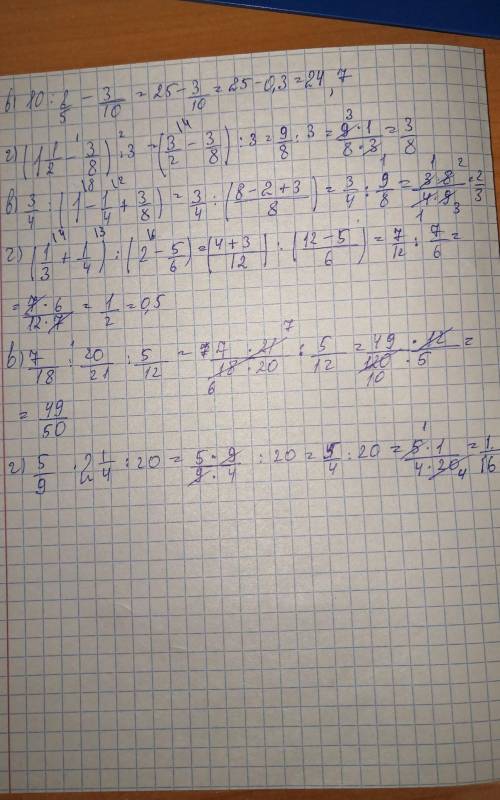 в) 10 : 2/5 − 3/10 = 25 − 3/10 = 25 − 0,3 = 24,7
г) (1 1/2 − 3/8) : 3 = (3/2 − 3/8) : 3 = 9/8 : 3 = 9·1/8·3 = 3/8
в) 3/4 : (1 − 1/4 + 3/8) = 3/4 : (8−2+3/8) = 3/4 : 9/8 = 3·8/4·9 = 2/3
г) (1/3 + 1/4) : (2 − 5/6) = (4+3/12) : (12−5/6) = 7/12 : 7/6 =
= 7·6/12·7 = 1/2 = 0,5
в) 7/18 : 20/21 : 5/12 = 7·21/18·20 : 5/12 = 49·12/120·5 =
= 49/50
г) 5/9 · 2 1/4 : 20 = 5·9/9·4 : 20 = 5/4 : 20 = 5·1/4·20 = 1/16